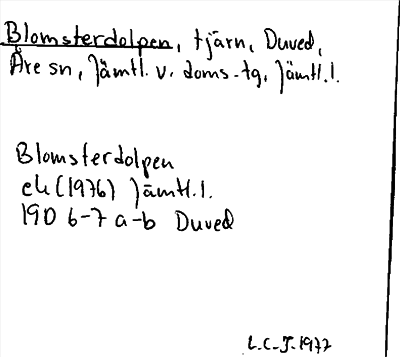 Blomsterdolpen, tjärn, Duved,
Åre sn, Jämtl. v. doms.tg, Jämtl.l.
Blomsterdolpen
ek (1976) Jämtl.l.
190 6-7 a-b Duved
L.C-J. 1977